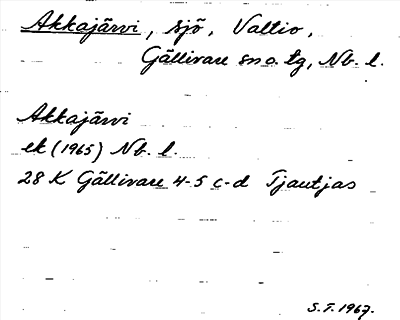 Akkajärvi, sjö, Valtio,
Gällivare sn o. tg, Nb. l.
Akkajärvi
ek (1965) Nb. l.
28 K Gällivare 4-5 c-d Tjautjas
S.F. 1967.